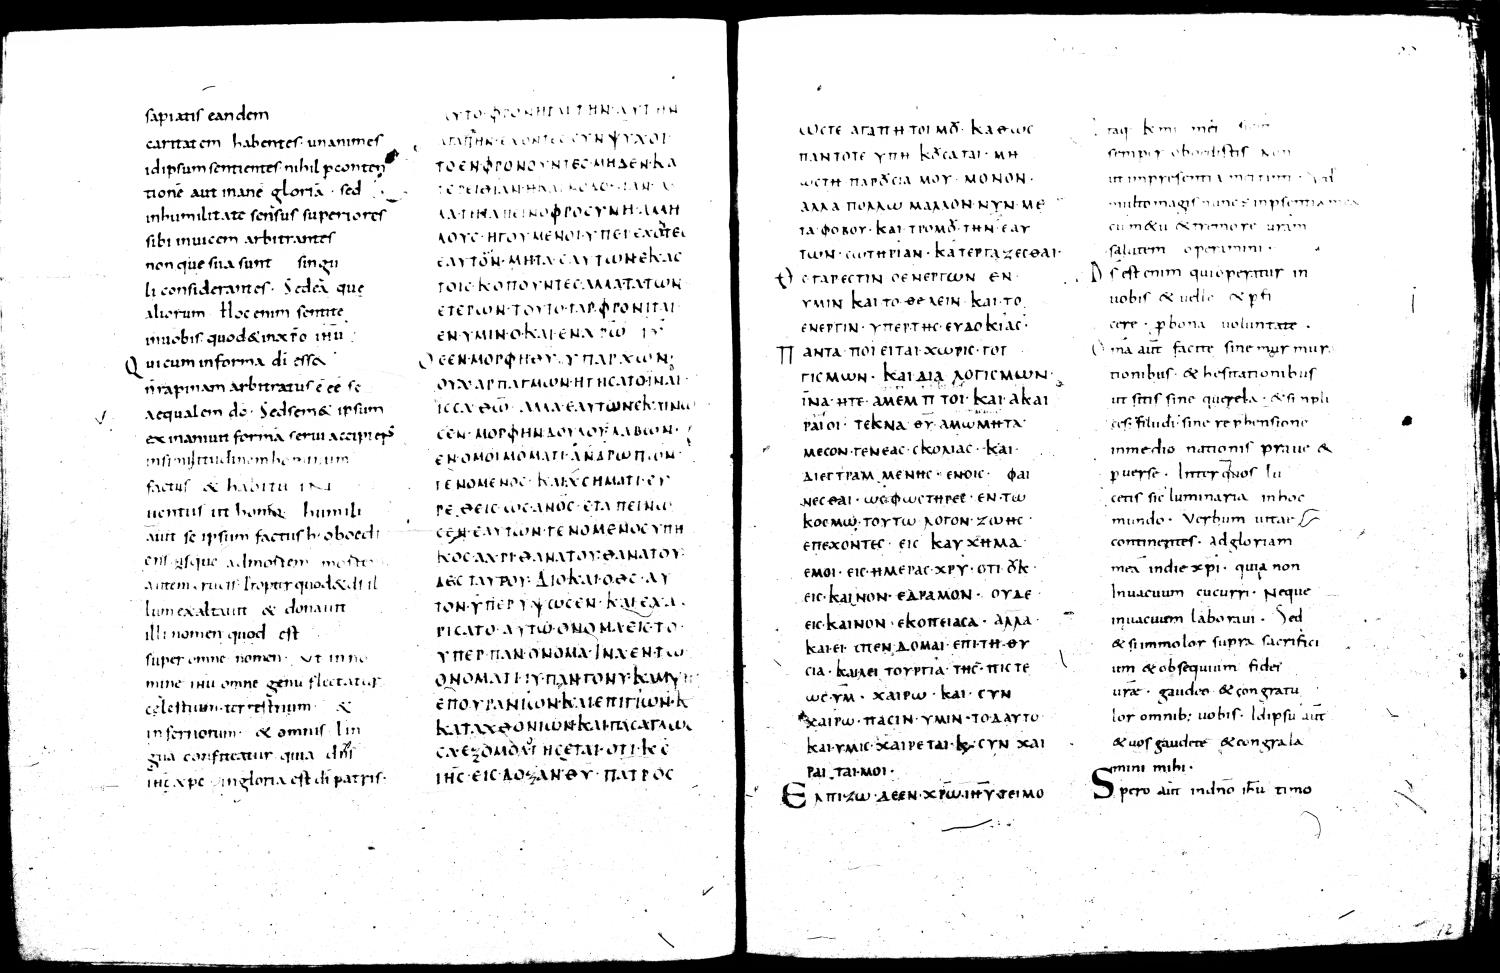 sapiatis eandem
caritatem habentes unanimes
idipsum sentientes nihil p conten
tionē aut inanē gloriā · sed
inhumilitate sensus superiores
sibi inuicem arbitrantes
non que sua sunt singu
li considerantes · Sed ea que
aliorum Hoc enim sentite
inuobis quod & inxp̄o ihū
Qui cum informa dī ess&
arbitratus ē ēē se
aequalem dō · Sed sem& ipsum
exinaniuit formā serui accipiens
factus & habitu
uentus ut homo humili
auit se ipsum factus oboedi
ens usque admortem
autem crucis Propter quod & dī il
lum exaltauit & donauit
illi nomen quod est
super omne nomen · Ut inno
mine ihū omne genu flectatur
celestium terrestrium &
infernorum · & omnis lin
gua confiteatur quia dn̄s
ihc xpc ingloria est dī patris ·
ΑΥΤΟ·ΦΡΟΝΗΤΑΙ ΤΗΝ·ΑΥΤΗΝ
ΤΟ ΕΝ ΦΡΟΝΟΥΝΤΕC·ΜΗΔΕΝ·ΚΑ
ΛΟΥC·ΗΓΟΥΜΕΝΟΙ·ΥΠΕΡΕΧΟΤΕC
ΕΑΥΤΟΝ·ΜΗΤΑ ΕΑΥΤΩΝ ΕΚΑC
ΤΟΙC·CΚΟΠΟΥΝΤΕC ΑΛΛΑ ΤΑ ΤΩΝ
ΕΤΕΡΩΝ·ΤΟΥΤΟ·ΓΑΡ·ΦΡΟΝΙΤΑΙ
ΕΝ·ΥΜΙΝ·Ο·ΚΑΙ·ΕΝ
Ο CΕΝ·ΜΟΡΦΗ ΘΥ·ΥΠΑΡΧΩΝ
ΟΥΧ ΑΡΠΑΓΜΩΝ·ΗΓΗCΑΤΟ
ΙCCΑ ΘΩ·ΑΛΛΑ·ΕΑΥΤΩΝ ΕΚΕΝΩ
CΕΝ·ΜΟΡΦΗΝ ΔΟΥΛΟΥ·ΛΑΒΩΝ
ΕΝ·ΟΜΟΙΜΟΜΑΤΙ·ΑΝΔΡΩΠΩΝ
ΓΕΝΟΜΕΝΟC·ΚΑΙ CΧΗΜΑΤΙ·ΕΥ
ΡΕΘΕΙC·ΩC·ΑΝΟC·ΕΤΑΠΕΙΝΩ
CΕΝ·ΕΑΥΤΩΝ·ΓΕΝΟΜΕΝΟC·ΥΠΗ
ΚΟC·ΑΧΡΙ·ΘΑΝΑΤΟΥ·ΘΑΝΑΤΟΥ
ΔΕ CΤΑΥΡΟΥ·ΔΙΟ·ΚΑΙ·Ο·ΘC·ΑΥ
ΤΟΝ·ΥΠΕΡΥΨΩCΕΝ·ΚΑΙ ΕΧΑ
ΡΙCΑΤΟ·ΑΥΤΩ·ΟΝΟΜΑ·ΕΙC·ΤΟ
ΥΠΕΡ·ΠΑΝ·ΟΝΟΜΑ·ΙΝΑ·ΕΝ·ΤΩ
ΟΝΟΜΑΤΙ·ΙΥ·ΠΑΝ ΓΟΝΥ·ΚΑΜΨΗ
ΕΠΟΥΡΑΝΙΩΝ·ΚΑΙ·ΕΠΙΓΙΩΝ·Κ
ΚΑΤΑΧΘΟΝΙΩΝ·ΚΑΙ·ΠΑCΑ ΓΛΩC
CΑ ΕΞΟΜΟΛΓΗCΕΤΑΙ·ΟΤΙ·ΚC
ΙΗC·ΕΙC·ΔΟΞΑΝ·ΘΥ·ΠΑΤΡΟC
ΩCΤΕ ΑΓΑΠΗΤΟΙ ΜȢ·ΚΑΘΩC
ΠΑΝΤΟΤΕ ΥΠΗΚȢCΑΤΑΙ·ΜΗ
ΩCΤΗ ΠΑΡȢCΙΑ ΜΟΥ·ΜΟΝΟΝ·
ΑΛΛΑ ΠΟΛΛΩ ΜΑΛΛΟΝ·ΝΥΝ·ΜΕ
ΤΑ ΦΟΒΟΥ·ΚΑΙ·ΤΡΟΜȢ·ΤΗΝ·ΕΑΥ
ΤΩΝ·CΩΤΗΡΙΑΝ·ΚΑΤΕΡΓΑΖΕCΘΑΙ·
Θ C ΓΑΡ ΕCΤΙΝ Ο ΕΝΕΡΓΩΝ ΕΝ·
ΥΜΙΝ ΚΑΙ·ΤΟ·ΘΕΛΕΙΝ·ΚΑΙ·ΤΟ
ΕΝΕΡΓΙΝ·ΥΠΕΡ·ΤΗC·ΕΥΔΟΚΙΑC·
Π ΑΝΤΑ·ΠΟΙΕΙΤΑΙ·ΧΩΡΙC·ΓΟΓ
ΓΙCΜΩΝ·ΚΑΙ ΔΙΑΛΟΓΙCΜΩΝ·
ΙΝΑ·ΗΤΕ·ΑΜΕΜΠΤΟΙ·ΚΑΙ·ΑΚΑΙ
ΡΑΙΟΙ·ΤΕΚΝΑ·ΘΥ·ΑΜΩΜΗΤΑ
ΜΕCΟΝ·ΓΕΝΕΑC·CΚΟΛΙΑC·ΚΑΙ·
ΔΙΕCΤΡΑΜΜΕΝΗC·ΕΝ ΟΙC· ΦΑΙ
ΝΕCΘΑΙ·ΩC ΦΩCΤΗΡΕC·ΕΝ·ΤΩ
ΚΟCΜΩ·ΤΟΥΤΩ ΛΟΓΟΝ·ΖΩΗC·
ΕΠΕΧΟΝΤΕC·ΕΙC ΚΑΥΧΗΜΑ·
ΕΜΟΙ·ΕΙC·ΗΜΕΡΑC·ΧΡΥ·ΟΤΙ·ȢΚ·
ΕΙC·ΚΑΙΝΟΝ·ΕΔΡΑΜΟΝ· ΟΥΔΕ·
ΕΙC·ΚΑΙΝΟΝ·ΕΚΟΠΕΙΑCΑ·ΑΛΛΑ·
ΚΑΙ·ΕΙ·CΠΕΝΔΟΜΑΙ·ΕΠΙ·ΤΗ·ΘΥ
CΙΑ·ΚΑΙ ΛΕΙΤΟΥΡΓΙΑ·ΤΗC·ΠΙCΤΕ
ΩC·ΥΜ·ΧΑΙΡΩ·ΚΑΙ·CΥΝ
ΧΑΙΡΩ·ΠΑCΙΝ·ΥΜΙΝ·ΤΟ·ΔΑΥΤΟ
ΚΑΙ·ΥΜΙC·ΧΑΙΡΕΤΑΙ·Κ·CΥΝ ΧΑΙ
ΡΑΙ·ΤΑΙ·ΜΟΙ·
Ε ΛΠΙΖΩ·ΔΕ ΕΝ·ΧΡΩ·ΙΗΥ ΤΕΙΜΟ
semper oboedistis Non
multo magis nunc
cum & u & tremore uram
salutem operamini ·
Ds est enim qui operatur in
uobis & uelle & pfi
cere · p bona uoluntate ·
Omā aut facite sine murmur
tionibus · & hesitationibus
ut sitis sine querela · & simpli
ces filii dī sine reprehensione
inmedio nationis praue &
puerse · Inter quos lu
cetis sic luminaria inhoc
mundo · Verbum uitae
continentes · adgloriam
meā indie xpī · quia non
Inuacuum cucurri · Neque
inuacuum laboraui · Sed
& si immolor supra sacrifici
um & obsequium fidei
urae · gaudeo & congratu
lor omnib; uobis · Idipsū aut
& uos gaudete & congrala
mini mihi ·
Spero aut indno ihu timo
12